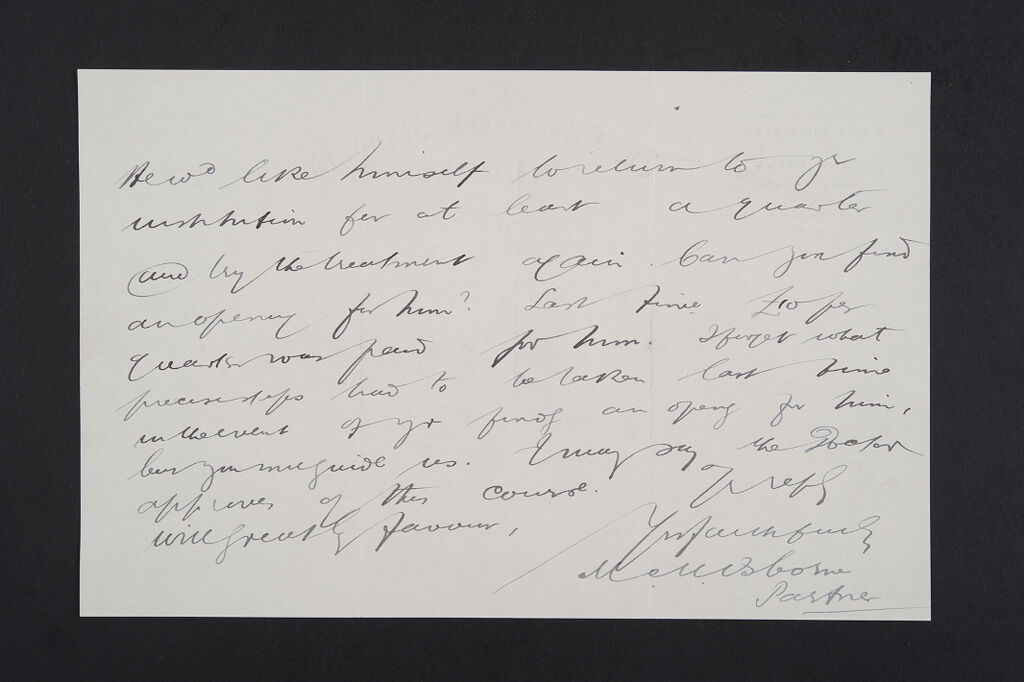 He wd like himself to return to yr
institution for at least a quarter
and try the treatment again. Can you find
an opening for him? Last time £10 per
quarter was paid for him. I forget what
precise steps had to be taken last time
in the event of yr findg an openg for him,
but you will guide us. I may say the Doctor
approves of this course. Yr reply
will greatly favour,
Yrs faithfully
Osborne
Partner